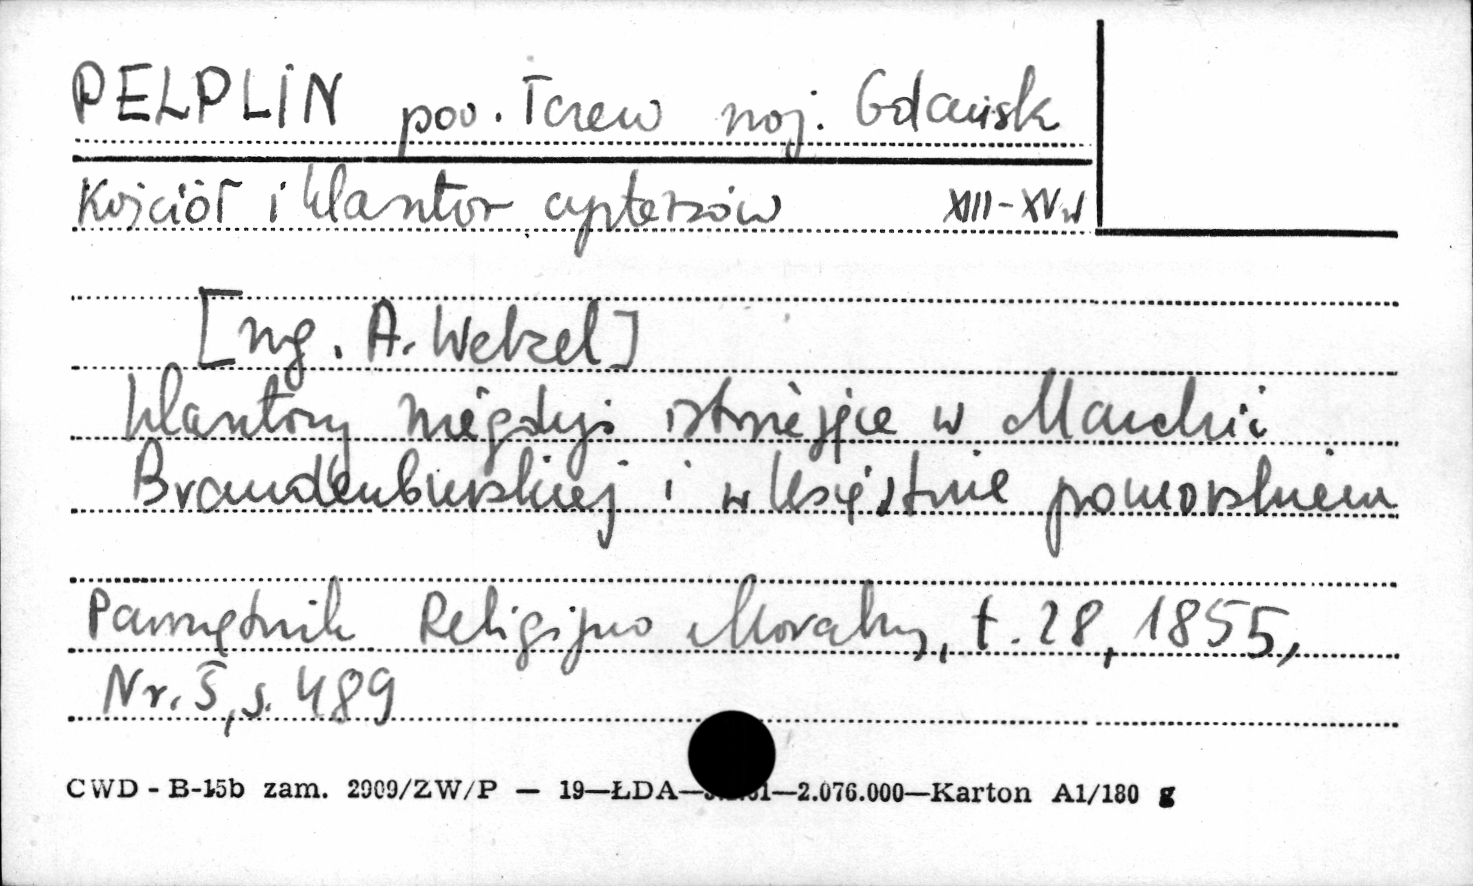 PELPLIN pow. Tczew woj. Gdańsk
Kościół i klasztor cystersów XIII-XV w
[ryg. A. Wetzel]
klasztory niegdyś istniejące w Marchii
Brandenburskiej i w księstwie pomorskiem
Pamiętnik Religijno Moralny, t. 28, 1855,
Nr. 5, s. 489
CWD - B-15b zam. 2909/ZW/P — 19—ŁDA— —2.076.000—Karton A1/180 g